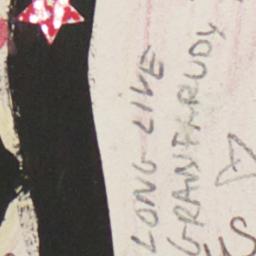 LONG LIVE
GRANFARUDY